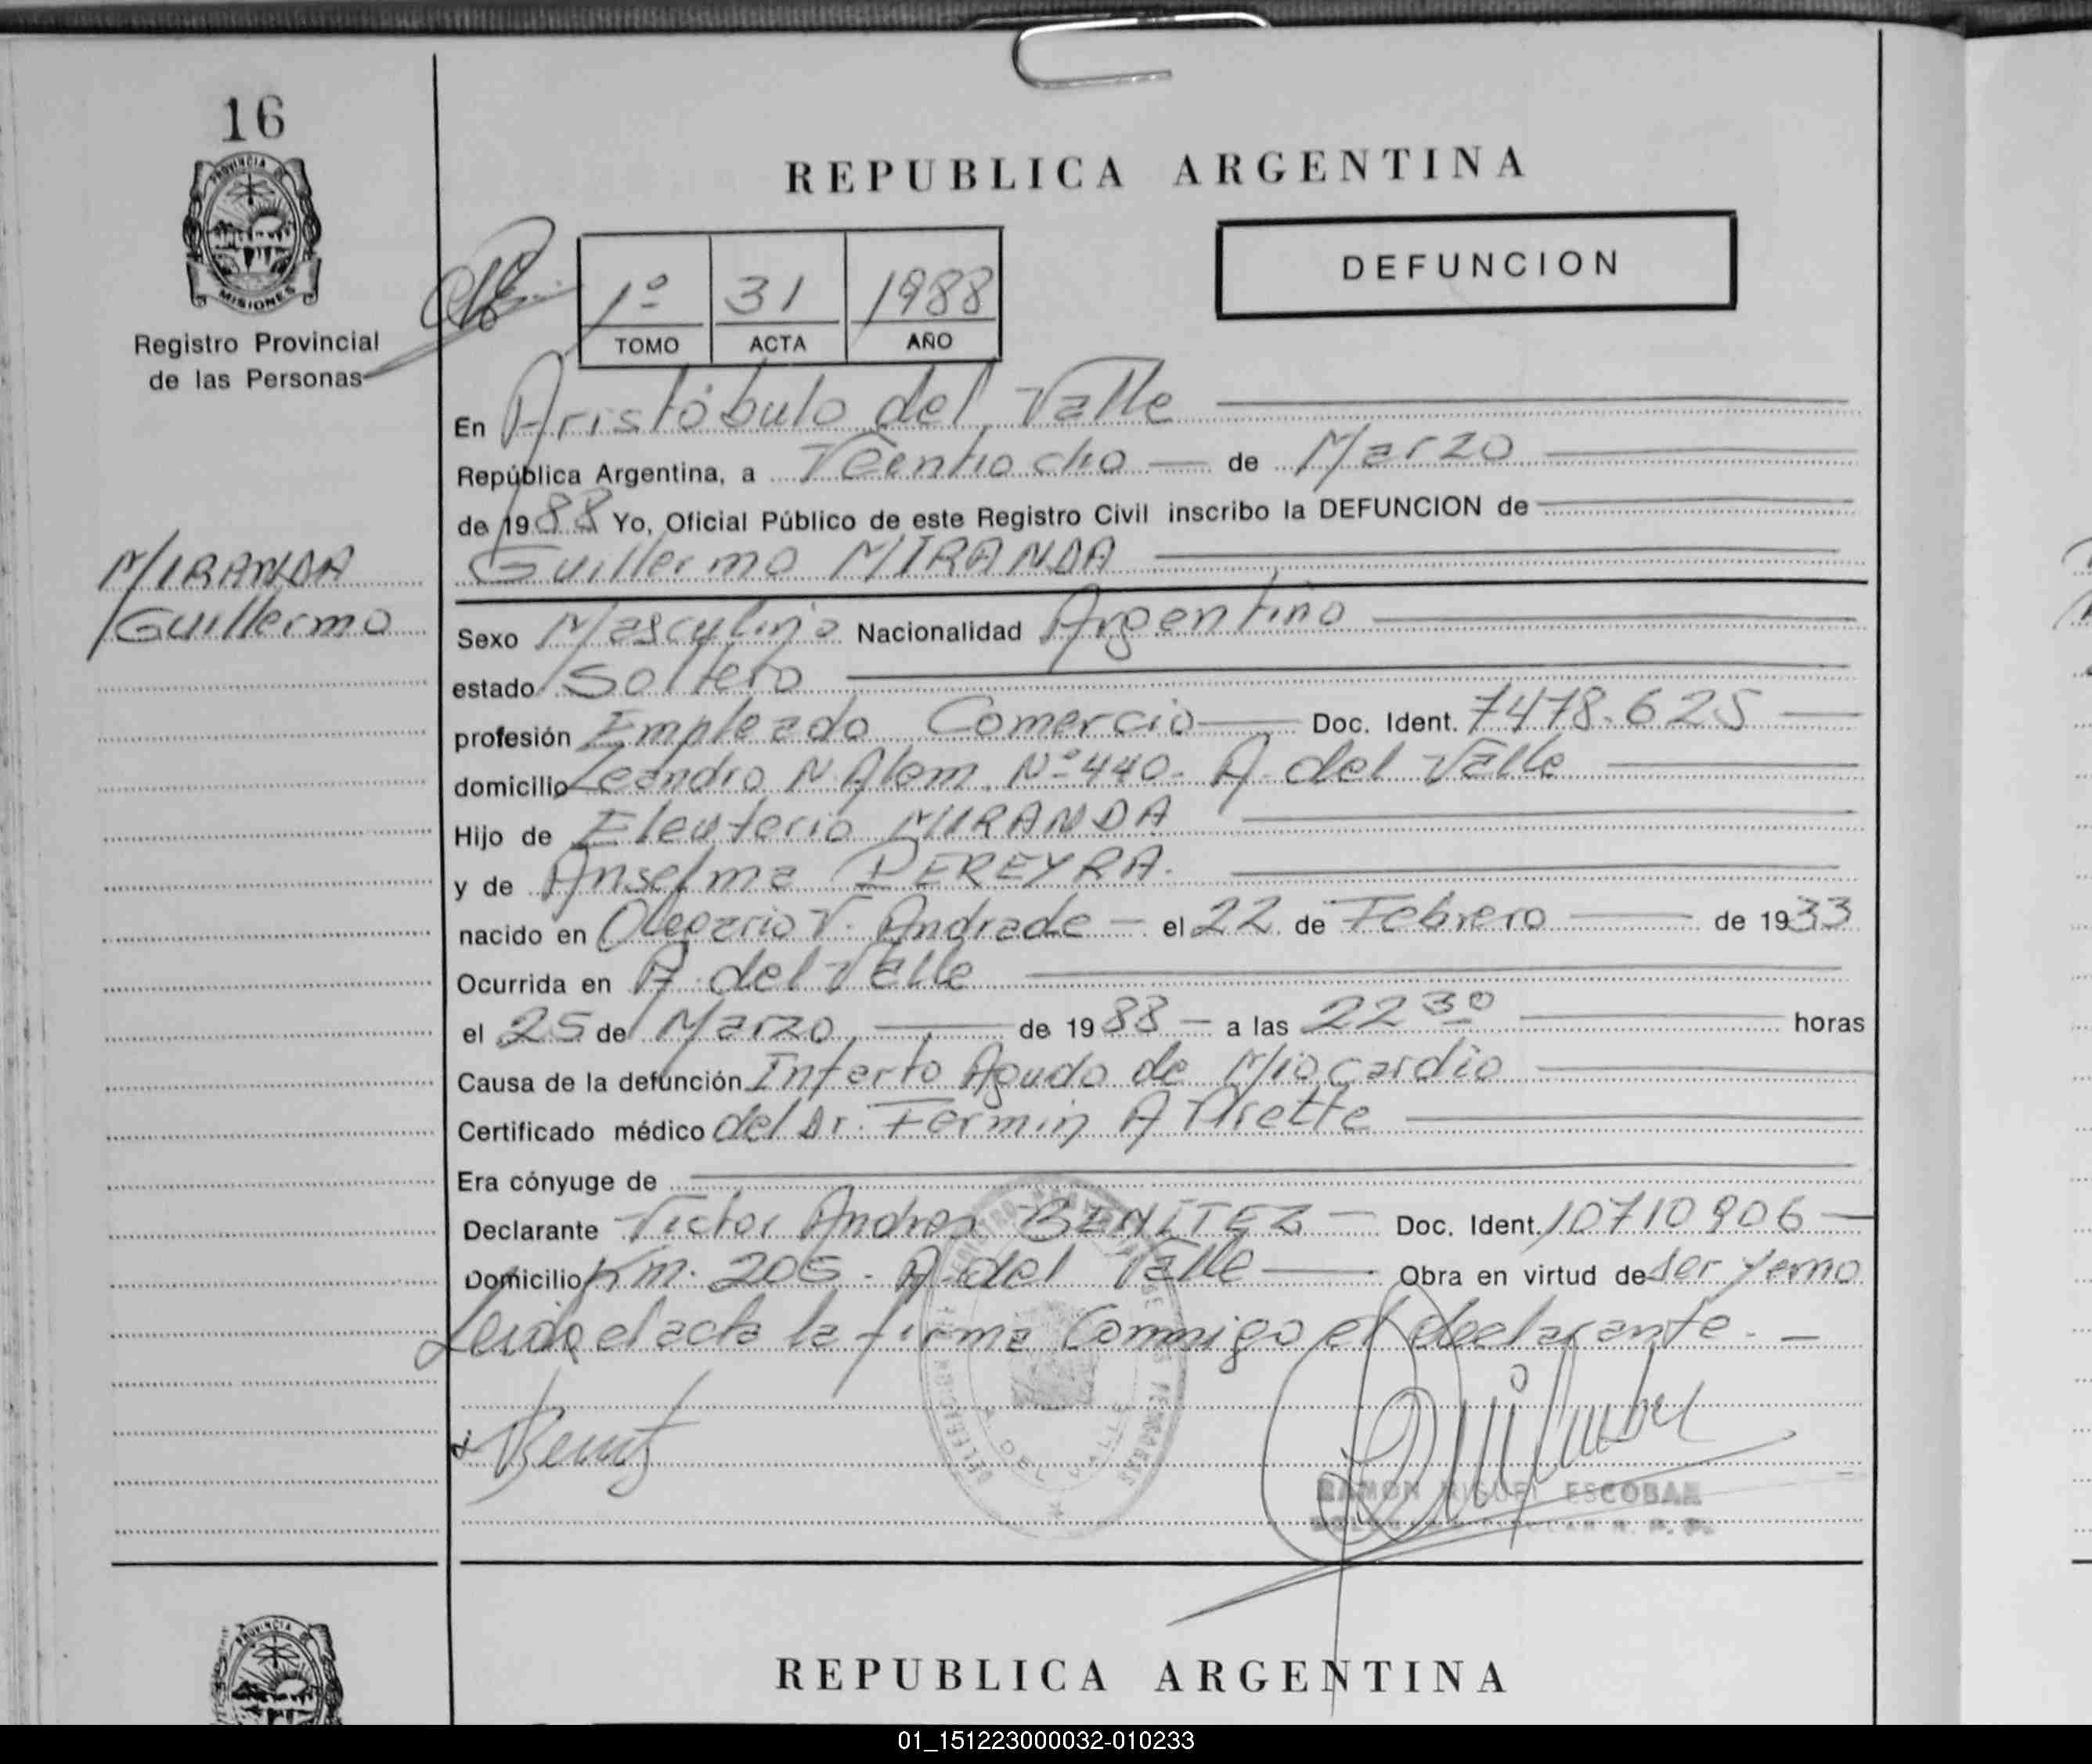 16
PROVINCIA DE
MISIONES
Registro Provincial
de las Personas
MIRANDA
Guillermo
REPUBLICA ARGENTINA
DEFUNCION
1º 31 1988
TOMO ACTA AÑO
En Aristóbulo del Valle
República Argentina, a Veintiocho de Marzo
de 1988 Yo, Oficial Público de este Registro Civil inscribo la DEFUNCION de
Guillermo MIRANDA
Sexo Masculino Nacionalidad Argentino
estado Soltero
profesión Empleado Comercio Doc. Ident. 7478.625
domicilio Leandro N. Alem Nº 440- A. del Valle
Hijo de Eleuterio MIRANDA
y de Anselma PEREYRA.
nacido en Olegario V. Andrade - el 22 de Febrero de 1933
Ocurrida en A. del Valle
el 25 de Marzo de 1988 - a las 22 30 horas
Causa de la defunción Infarto Agudo de Miocardio
Certificado médico del Dr. Fermin A
Era cónyuge de
Declarante Victor Andres BENITEZ - Doc. Ident. 10710906
Domicilio Km. 205. A. del Valle Obra en virtud de ser yerno
Leida el acta la firma Conmigo el declarante.-
A. DEL VALLE
RAMON MIGUEL ESCOBAR
REPUBLICA ARGENTINA
PROVINCIA
01_151223000032-010233